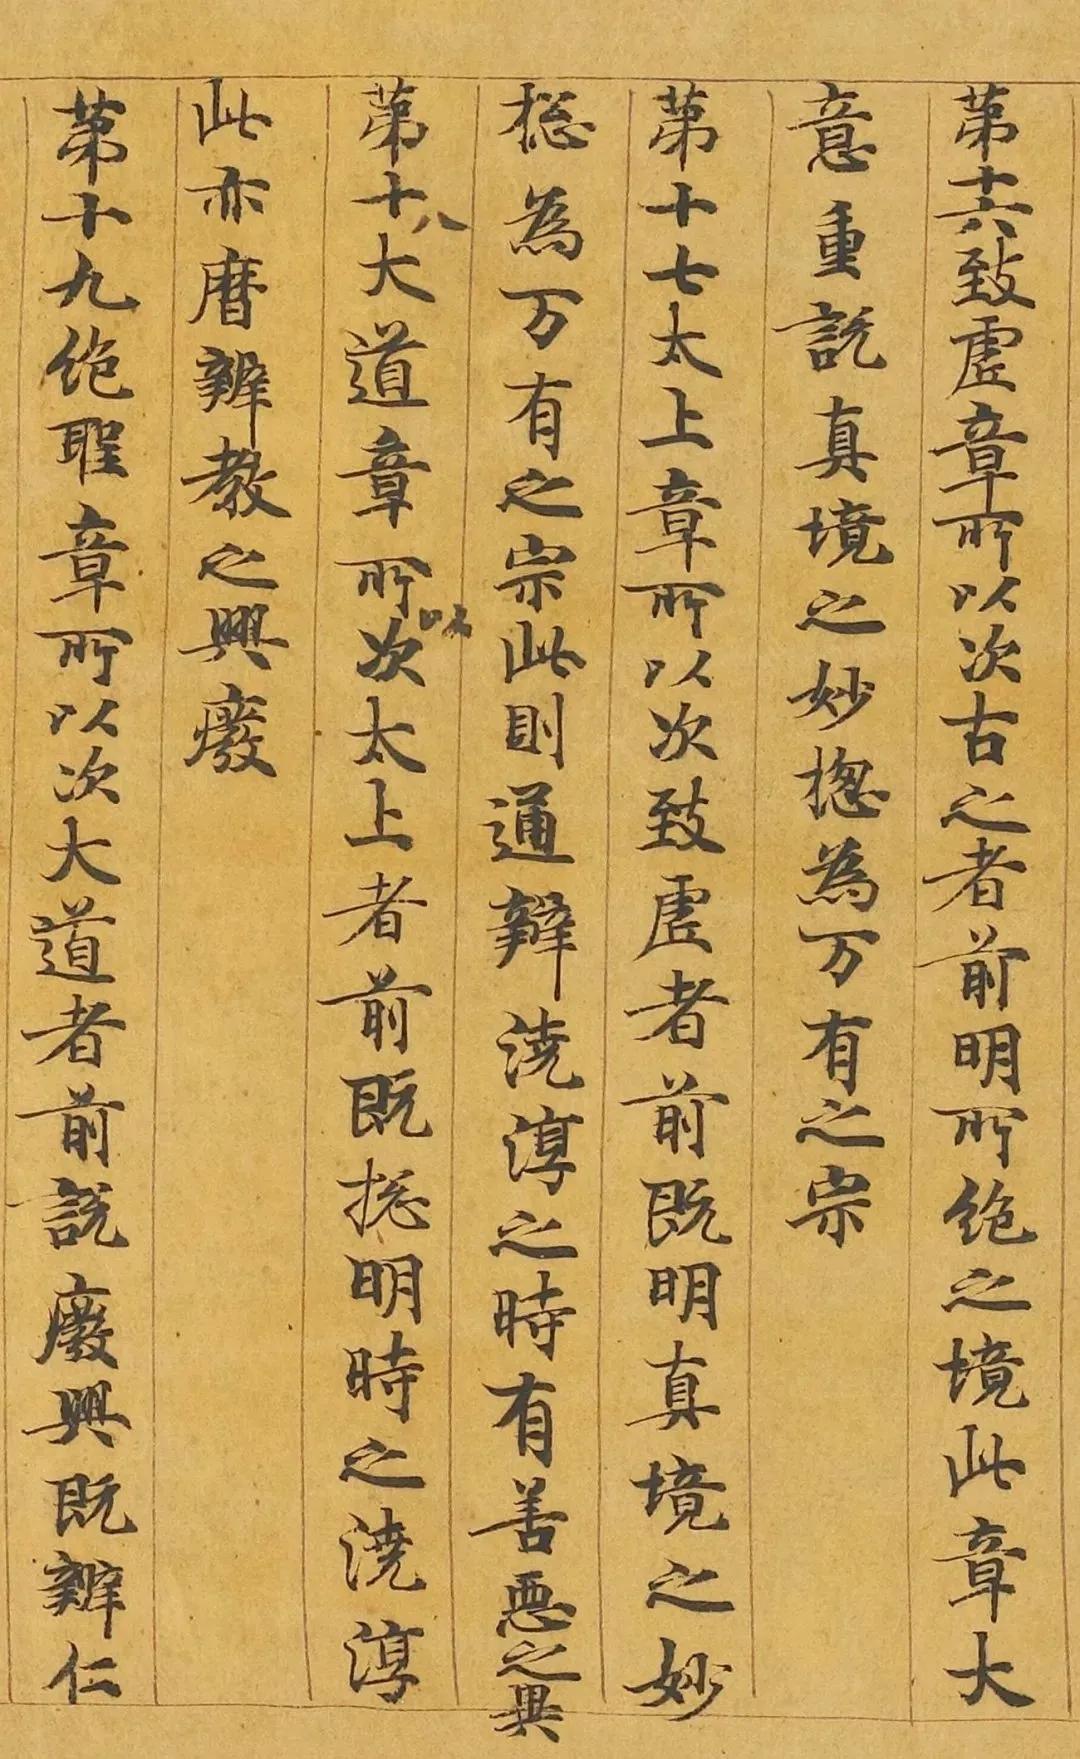 第十六致虛章所以次古之者前明所绝之境此章大
意重説真境之妙揔為万有之宗
第十七太上章所以次致虛者前既明真境之妙
揔為万有之宗此則通辯澆淳之時有善惡之異
第十八大道章所以次太上者前既揔明時之澆淳
此亦曆辨教之興廢
第十九絶聖章所以次大道者前説廢興既辨仁